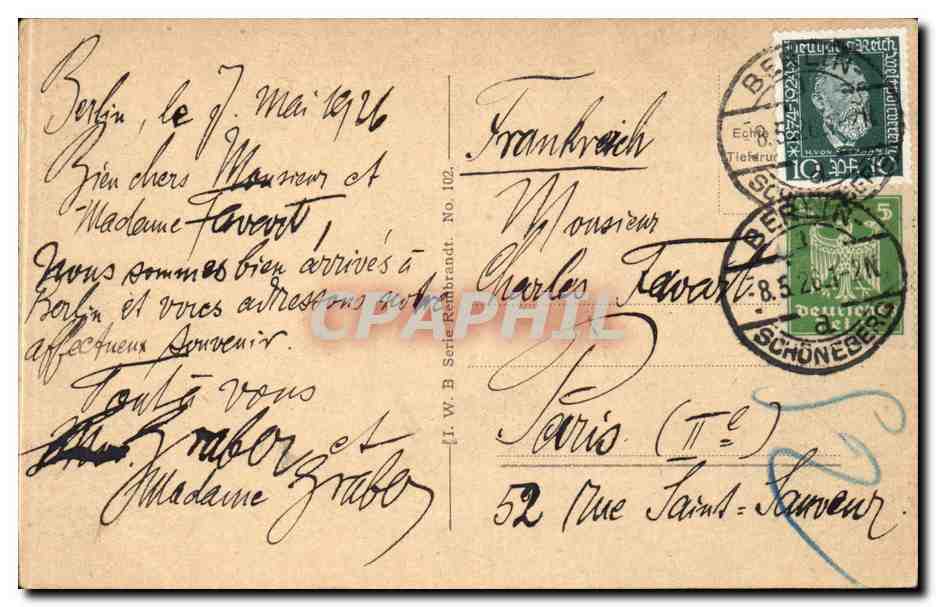 Berlin, le 7. Mai 1926
Bien chers Monsieur et
Madame Favart,
Nous sommes bien arrivés à
Berlin et vous adressons notre
affectueux souvenir.
Tout à vous
Graber et
Madame Graber
I. W. B Serie Rembrandt. No. 102.
Frankreich
Monsieur
Charles Favart.
Paris. (IIe)
52 Rue Saint=Sauveur.
Echte
Tiefdru
Deutsches Reich
Weltpostverein
*1874-1924
H.VON
10 Pf 10
BERLIN
8.5.
SCHÖNEBERG
5
deutsches
Reich
BERLIN
8.5.26.1-2N.
a
SCHÖNEBERG
CPAPHIL